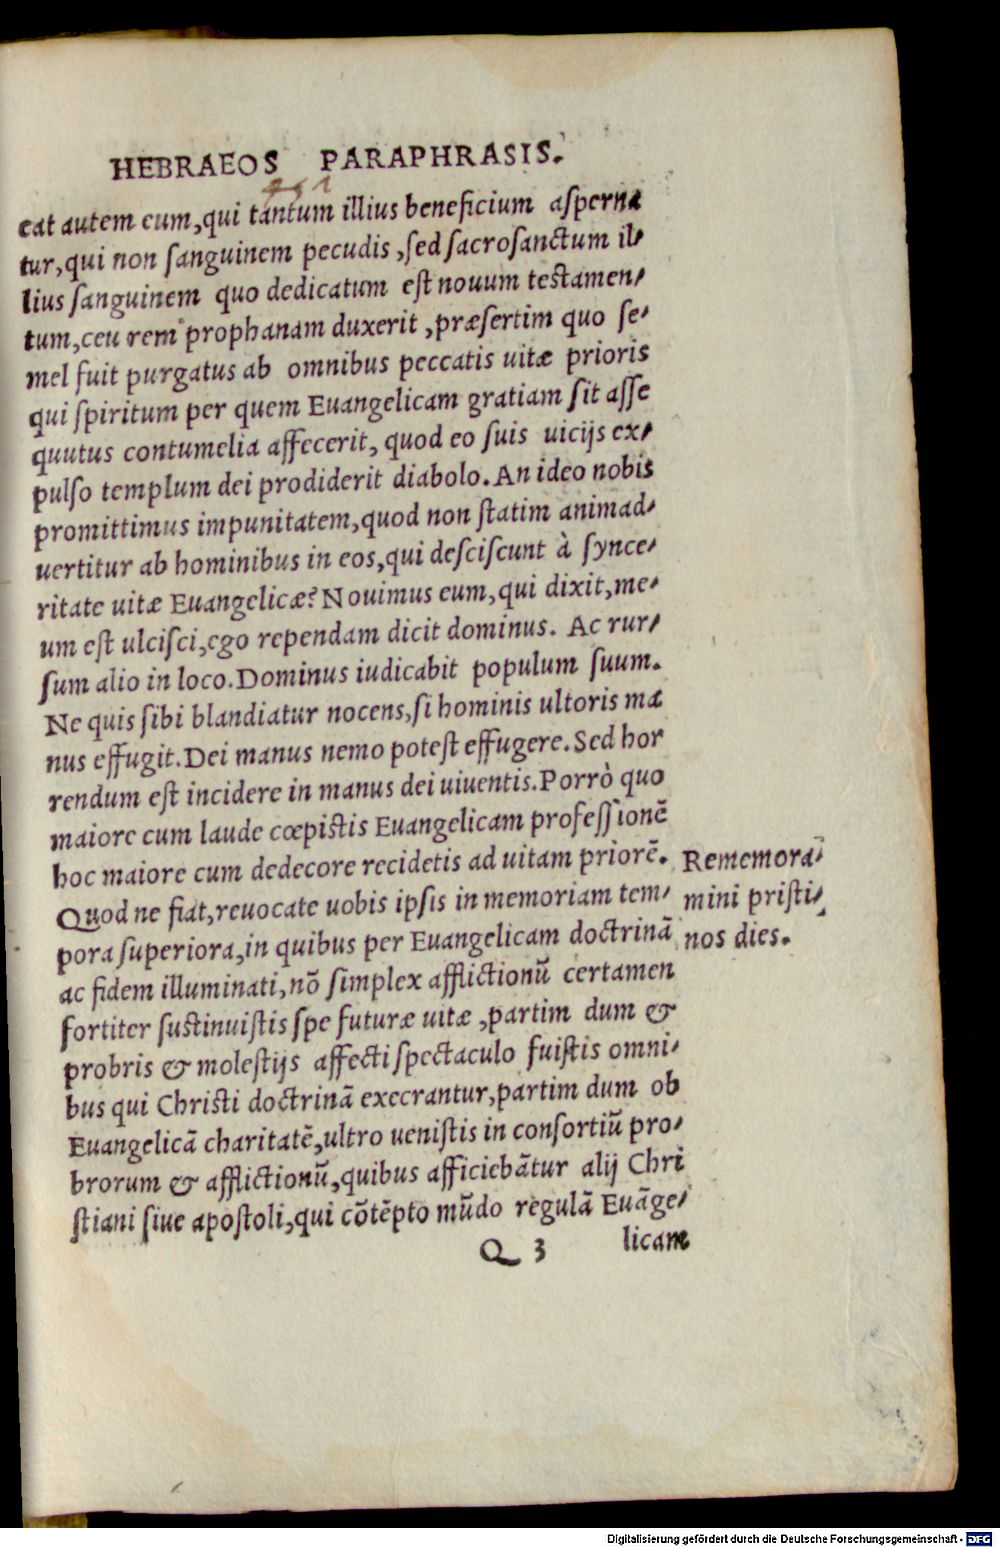 HEBRAEOS PARAPHRASIS.
eat autem eum,qui tantum illius beneficium asperna
tur,qui non sanguinem pecudis ,sed sacrosanctum il-
lius sanguinem quo dedicatum est nouum testamen-
tum,ceu rem prophanam duxerit ,præsertim quo se-
mel fuit purgatus ab omnibus peccatis uitæ prioris
qui spiritum per quem Euangelicam gratiam sit asse
quutus contumelia affecerit, quod eo suis uicijs ex-
pulso templum dei prodiderit diabolo.An ideo nobis
promittimus impunitatem,quod non statim animad-
uertitur ab hominibus in eos,qui desciscunt à synce-
ritate uitæ Euangelicæ?Nouimus eum,qui dixit,me-
um est ulcisci,ego rependam dicit dominus. Ac rur-
sum alio in loco.Dominus iudicabit populum suum.
Ne quis sibi blandiatur nocens,si hominis ultoris ma
nus effugit.Dei manus nemo potest effugere.Sed hor
rendum est incidere in manus dei uiuentis.Porrò quo
maiore cum laude cœpistis Euangelicam professionē
hoc maiore cum dedecore recidetis ad uitam priorē.
Quod ne fiat,reuocate uobis ipsis in memoriam tem-
pora superiora,in quibus per Euangelicam doctrinā
ac fidem illuminati,nō simplex afflictionū certamen
fortiter sustinuistis spe futuræ uitæ ,partim dum &
probris & molestijs affecti spectaculo fuistis omni-
bus qui Christi doctrinā execrantur,partim dum ob
Euangelicā charitatē,ultro uenistis in consortiū pro-
brorum & afflictionū,quibus afficiebātur alij Chri
stiani siue apostoli,qui cōtēpto mūdo regulā Euāge-
Q 3 licam
Rememora-
mini pristi-
nos dies.
Digitalisierung gefördert durch die Deutsche Forschungsgemeinschaft - DFG